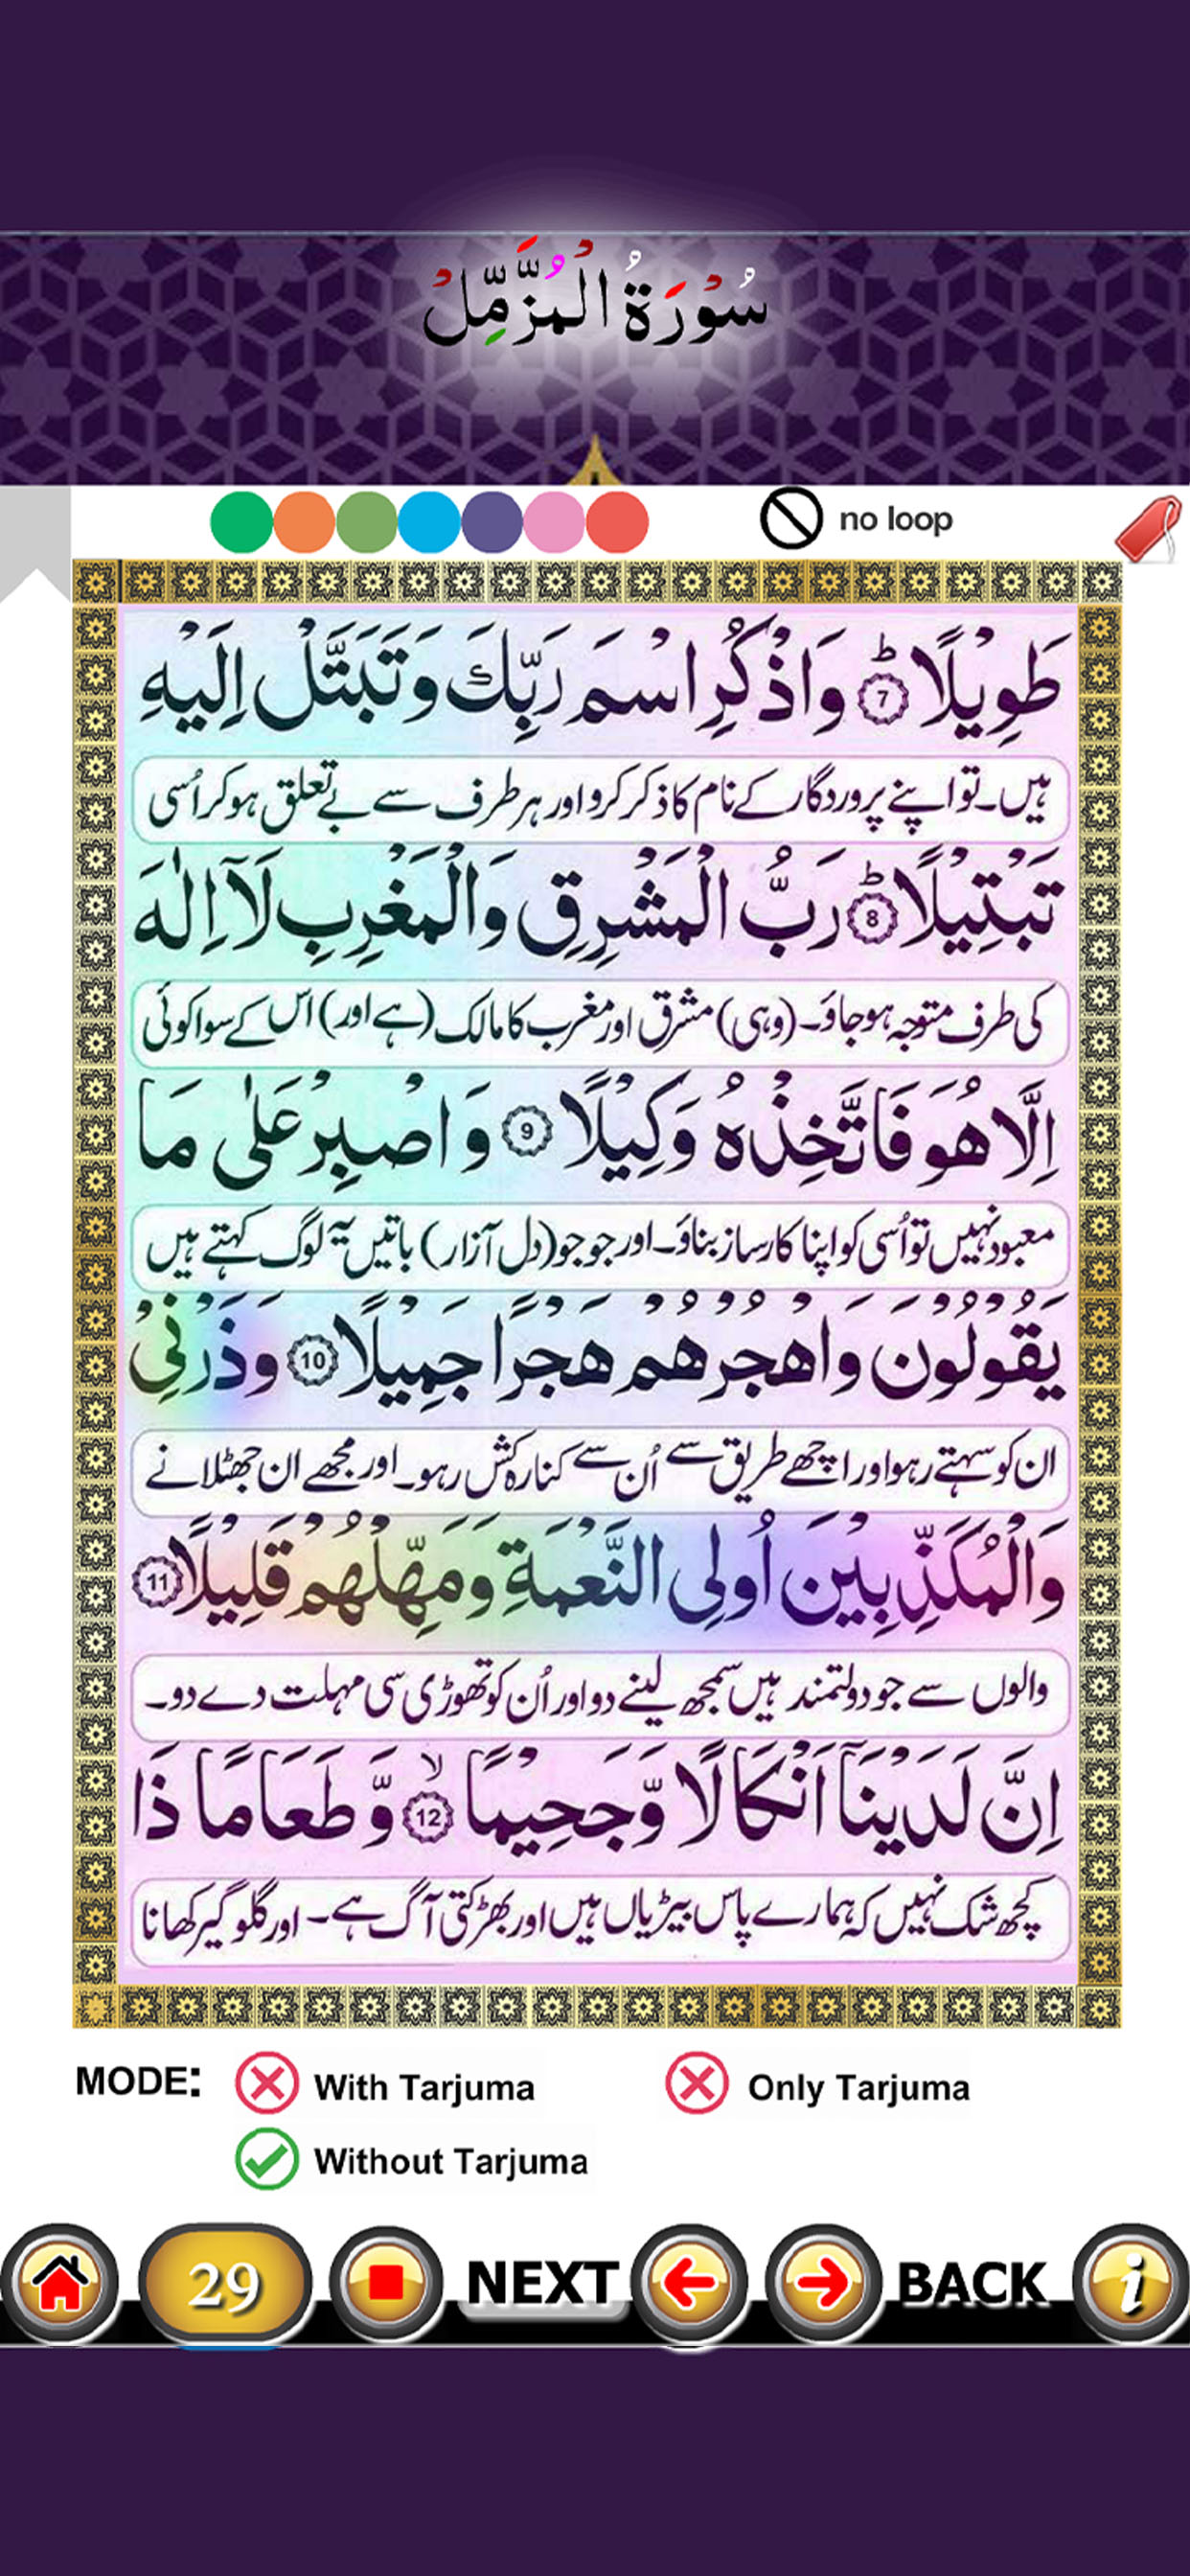 سُوْرَةُ الْمُزَّمِّلْ
no loop
طَوِيْلًا ؕ 7 وَاذْكُرِ اسْمَ رَبِّكَ وَتَبَتَّلْ اِلَيْهِ
ہیں۔ تو اپنے پروردگار کے نام کا ذکر کرو اور ہر طرف سے بے تعلق ہو کر اُسی
تَبْتِيْلًا ؕ 8 رَبُّ الْمَشْرِقِ وَالْمَغْرِبِ لَآ اِلٰهَ
کی طرف متوجہ ہو جاؤ۔ (وہی) مشرق اور مغرب کا مالک (ہے اور) اس کے سوا کوئی
اِلَّا هُوَ فَاتَّخِذْهُ وَكِيْلًا 9 وَاصْبِرْ عَلٰى مَا
معبود نہیں تو اُسی کو اپنا کارساز بناؤ۔ اور جو جو (دل آزار) باتیں یہ لوگ کہتے ہیں
يَقُوْلُوْنَ وَاهْجُرْهُمْ هَجْرًا جَمِيْلًا 10 وَذَرْنِيْ
ان کو سہتے رہو اور اچھے طریق سے اُن سے کنارہ کش رہو۔ اور مجھے ان جھٹلانے
وَالْمُكَذِّبِيْنَ اُولِى النَّعْمَةِ وَمَهِّلْهُمْ قَلِيْلًا 11
والوں سے جو دولتمند ہیں سمجھ لینے دو اور اُن کو تھوڑی سی مہلت دے دو۔
اِنَّ لَدَيْنَآ اَنْكَالًا وَّجَحِيْمًا ۙ 12 وَّطَعَامًا ذَا
کچھ شک نہیں کہ ہمارے پاس بیڑیاں ہیں اور بھڑکتی آگ ہے۔ اور گلوگیر کھانا
MODE: With Tarjuma Only Tarjuma
Without Tarjuma
29 NEXT BACK i